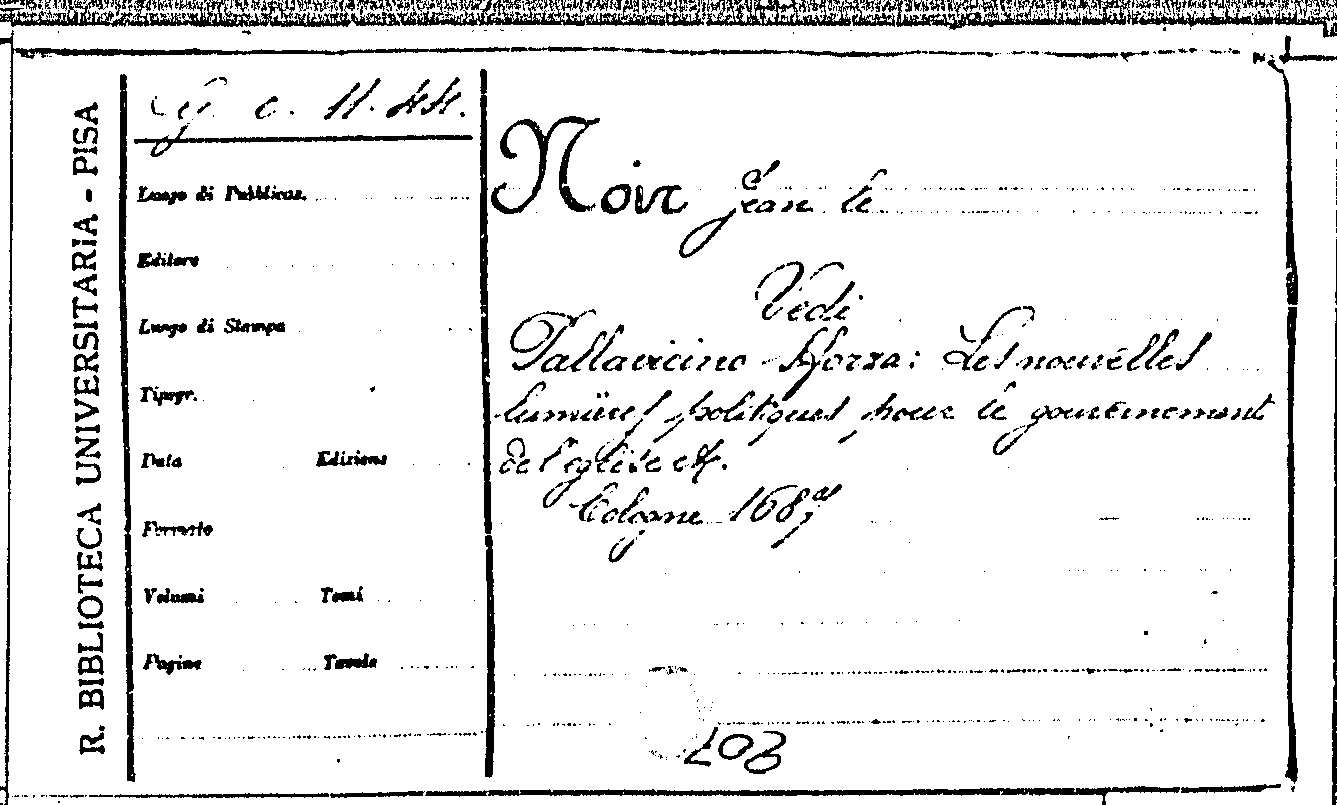 R. BIBLIOTECA UNIVERSITARIA - PISA
c. 11. 44.
Luogo di Pubblicaz.
Editore
Luogo di Stampa
Tipogr.
Data Edizione
Formato
Volumi Tomi
Pagine Tavole
Noir Jean le
Vedi
Pallavicino Sforza: Les nouvelles
lumières politiques pour le gouvernement
de l'eglise etc.
Cologne 1687
207